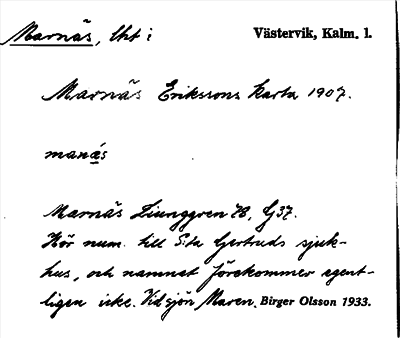 Marnäs, lht i Västervik, Kalm. l.
Marnäs Erikssons karta 1907.
manás
Marnäs Ljunggren 78, G37.
Hör num. till S:ta Gertruds sjuk-
hus, och namnet förekommer egent-
ligen icke. Vid sjön Maren. Birger Olsson 1933.